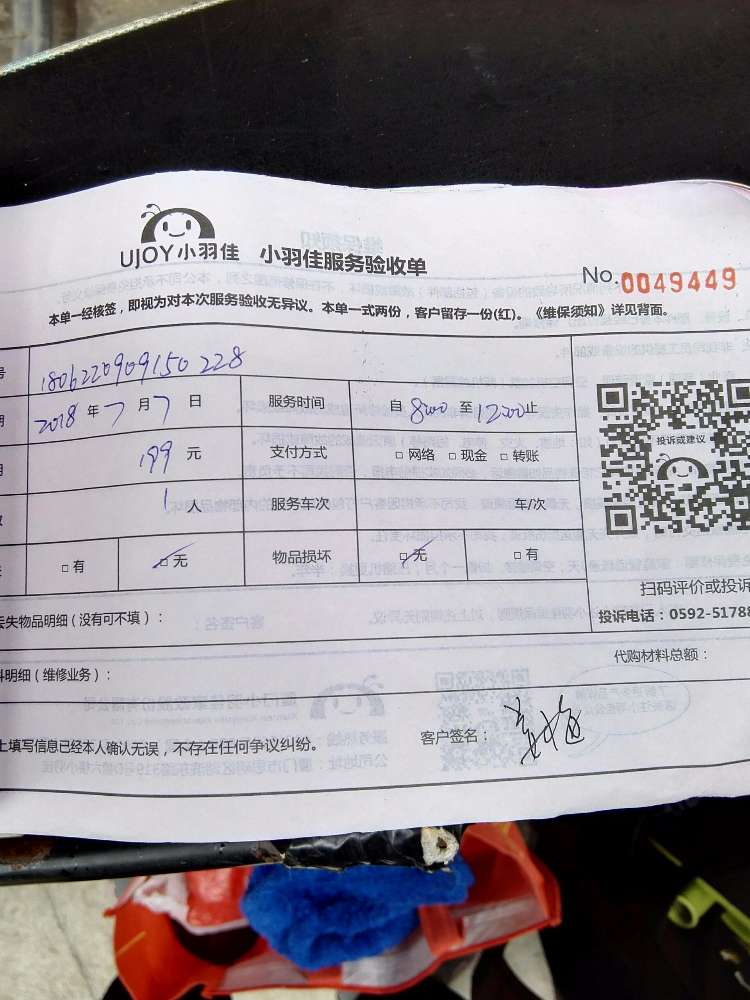 UJOY小羽佳 小羽佳服务验收单
No.0049449
本单一经核签，即视为对本次服务验收无异议。本单一式两份，客户留存一份(红)。《维保须知》详见背面。
号 1806220909150228
期 2018 年 7 月 7 日 服务时间 自 8:00 至 12:00 止
199 元 支付方式 □ 网络 □ 现金 □ 转账
1 人 服务车次 车/次
□ 有 □ 无 物品损坏 □ 无 □ 有
投诉或建议
扫码评价或投诉
投诉电话：0592-51788
丢失物品明细（没有可不填）：
代购材料总额：
料明细（维修业务）：
上填写信息已经本人确认无误，不存在任何争议纠纷。
客户签名：